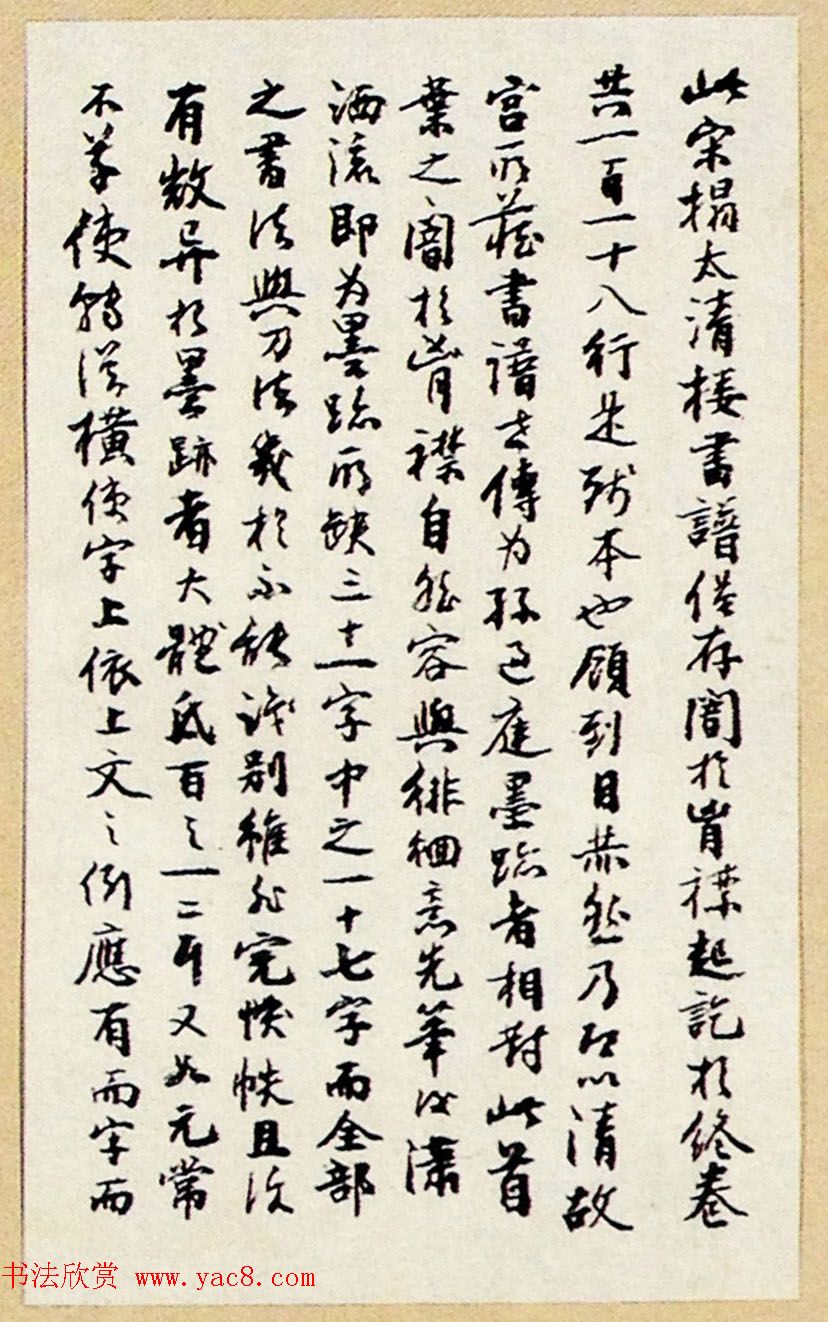 此宋搨太清楼書譜僅存闇於胷襟起訖於終卷
共一百一十八行是残本也領到日恭然乃即以清故
宫所藏書譜世傳为孫过庭墨跡者相對此首
葉之闇於胷襟自然容與徘徊意先筆後瀟
洒流即为墨跡所缺三十一字中之一十七字而全部
之書法與刀法幾於不能識别雖非完帙帙且次
有数异於墨跡者大體氐百之一二耳又如元常
不草使转從横使字上依上文之例應有而字而
书法欣赏 www.yac8.com